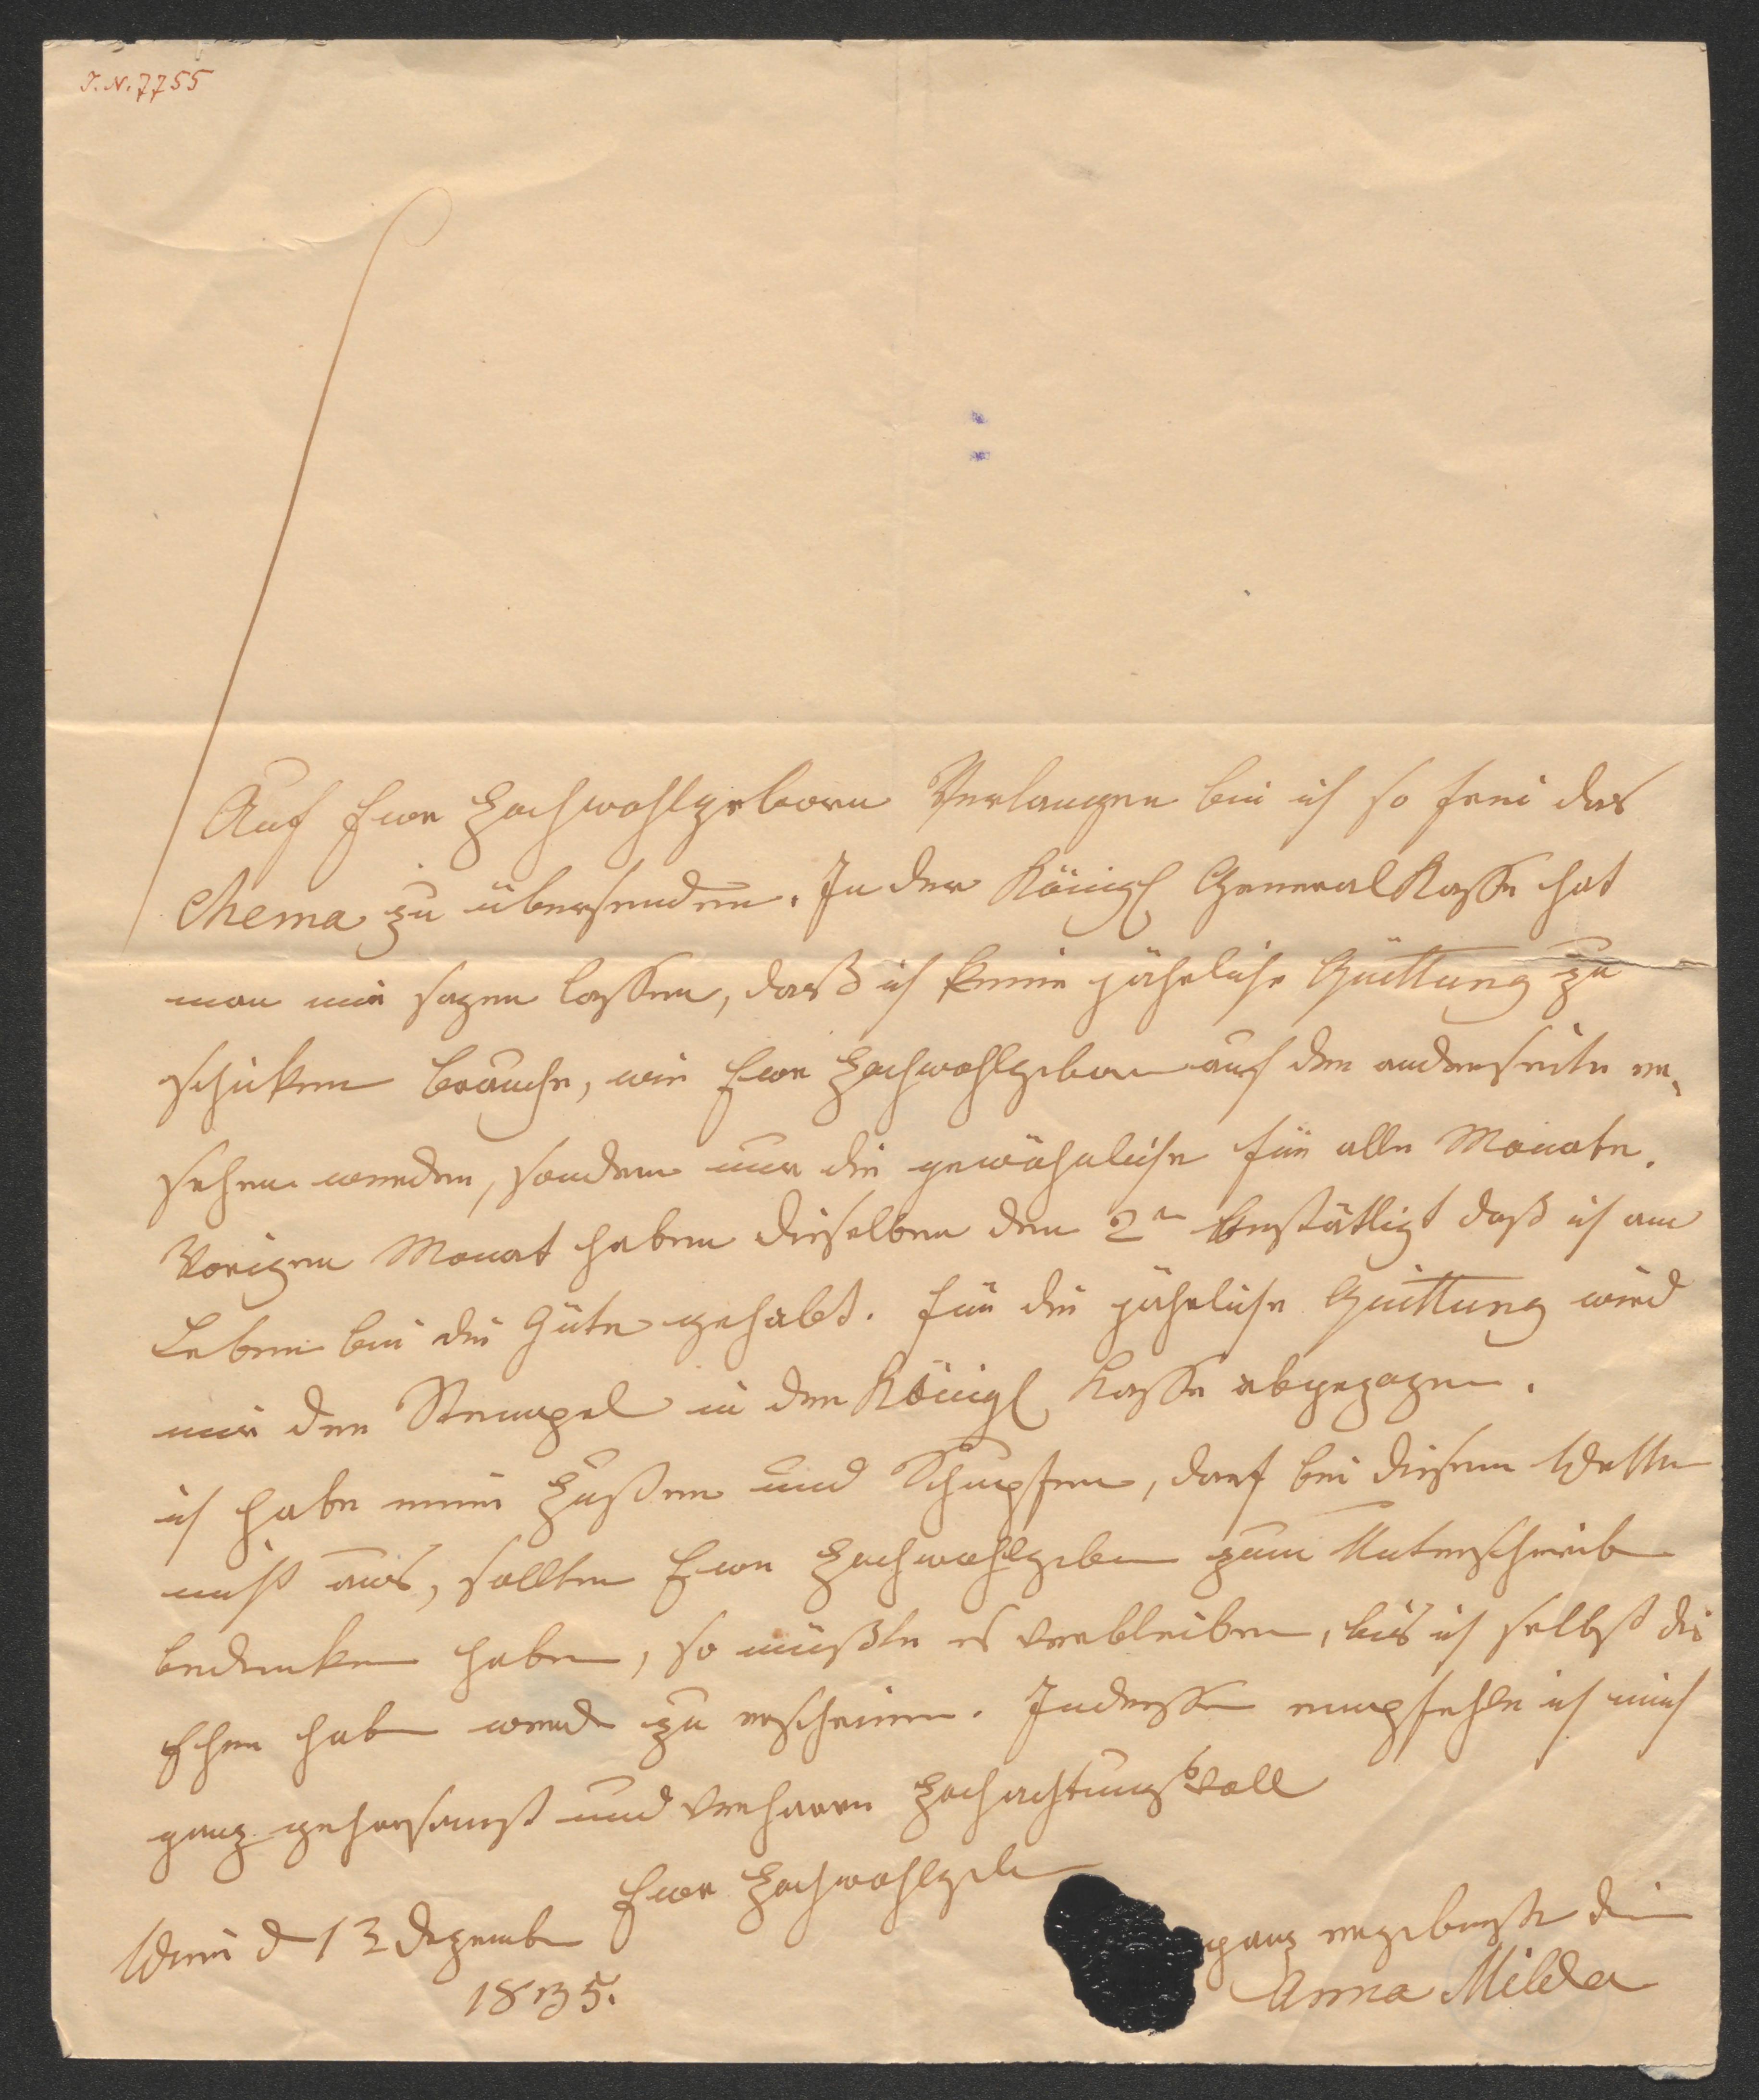 J. N. 7755
Auf Euer Hochwohlgeborn Verlangen bin ich so frei das
zu übersenden. In der Königl General Kasse hat
man mir sagen lassen, daß ich keine jährliche Quittung zu
schicken brauche, wie Euer Hochwohlgeborn auf der anderseite er-
sehen werden, sondern nur die gewöhnliche für alle Monate.
Vorigen Monat haben dieselben den 2n bestättigt daß ich am
Leben bin die Güte gehabt. Für die jährliche Quittung wird
mir der Stempel in der Königl Kasse abgezogen.
ich habe einen Husten und Schnupfen, darf bei diesem Wetter
nicht aus, sollten Euer Hochwohlgeborn zum Unterschreiben
bedenken haben, so müßte es verbleiben, bis ich selbst die
Ehre haben werde zu erscheinen. Indessen empfehle ich mich
ganz gehorsamst und verharre Hochachtungsvoll
Euer Hochwohlgeb
Wien d 13 Dezember
1835.
ganz ergebenste Die
Anna Milder